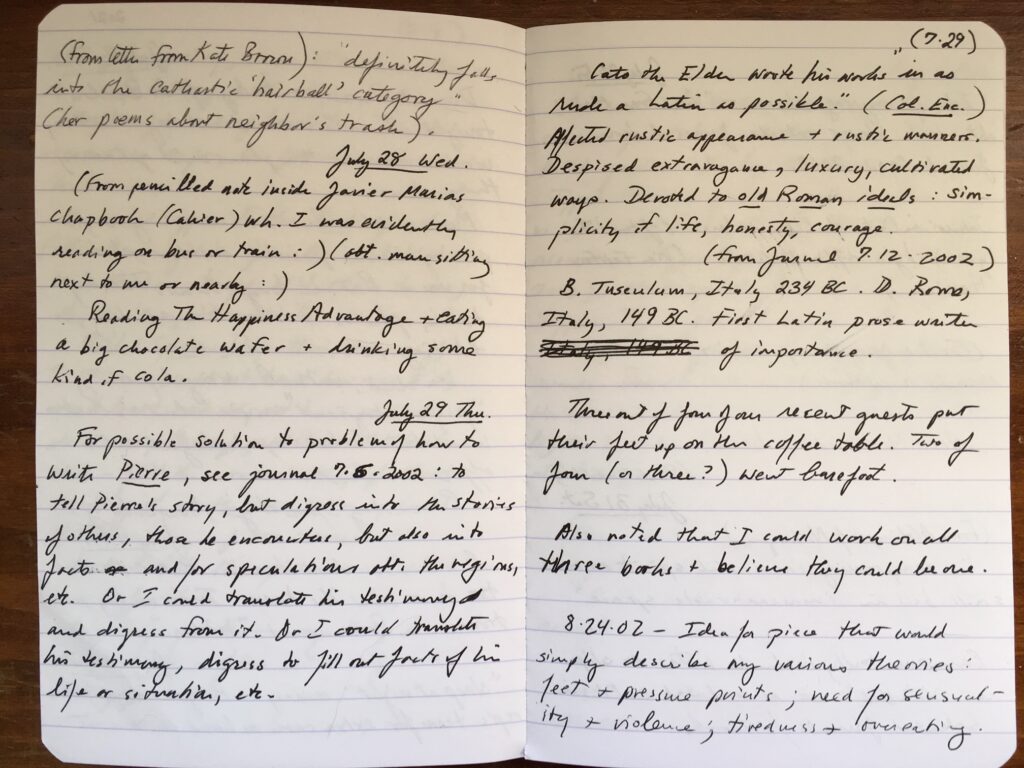 (From letter from Kate Brown): "definitely falls
into the cathartic 'hairball' category"
(her poems about neighbor's trash).
July 28 Wed.
(From pencilled note inside Javier Marias
chapbook (Cahier) wh. I was evidently
reading on bus or train:) (abt. man sitting
next to me or nearby:)
Reading The Happiness Advantage + eating
a big chocolate wafer + drinking some
kind of cola.
July 29 Thu.
For possible solution to problem of how to
write Pierre, see journal 7.5.2002: to
tell Pierre's story, but digress into the stories
of others, those he encounters, but also into
facts and/or speculations abt. the regions,
etc. Or I could translate his testimony
and digress from it. Or I could translate
his testimony, digress to fill out facts of his
life or situation, etc.
(7.29)
"Cato the Elder wrote his works in as
rude a Latin as possible." (Col. Enc.)
Affected rustic appearance + rustic manners.
Despised extravagance, luxury, cultivated
ways. Devoted to old Roman ideals: sim-
plicity of life, honesty, courage.
(from Journal 7.12.2002)
B. Tusculum, Italy 234 BC. D. Rome,
Italy, 149 BC. First Latin prose writer
Italy, 149 BC of importance.
Three out of four of our recent guests put
their feet up on the coffee table. Two of
four (or three?) went barefoot.
Also noted that I could work on all
three books + believe they could be one.
8.24.02 - Idea for piece that would
simply describe my various theories:
feet + pressure points; need for sensual-
ity + violence; tiredness + overeating.